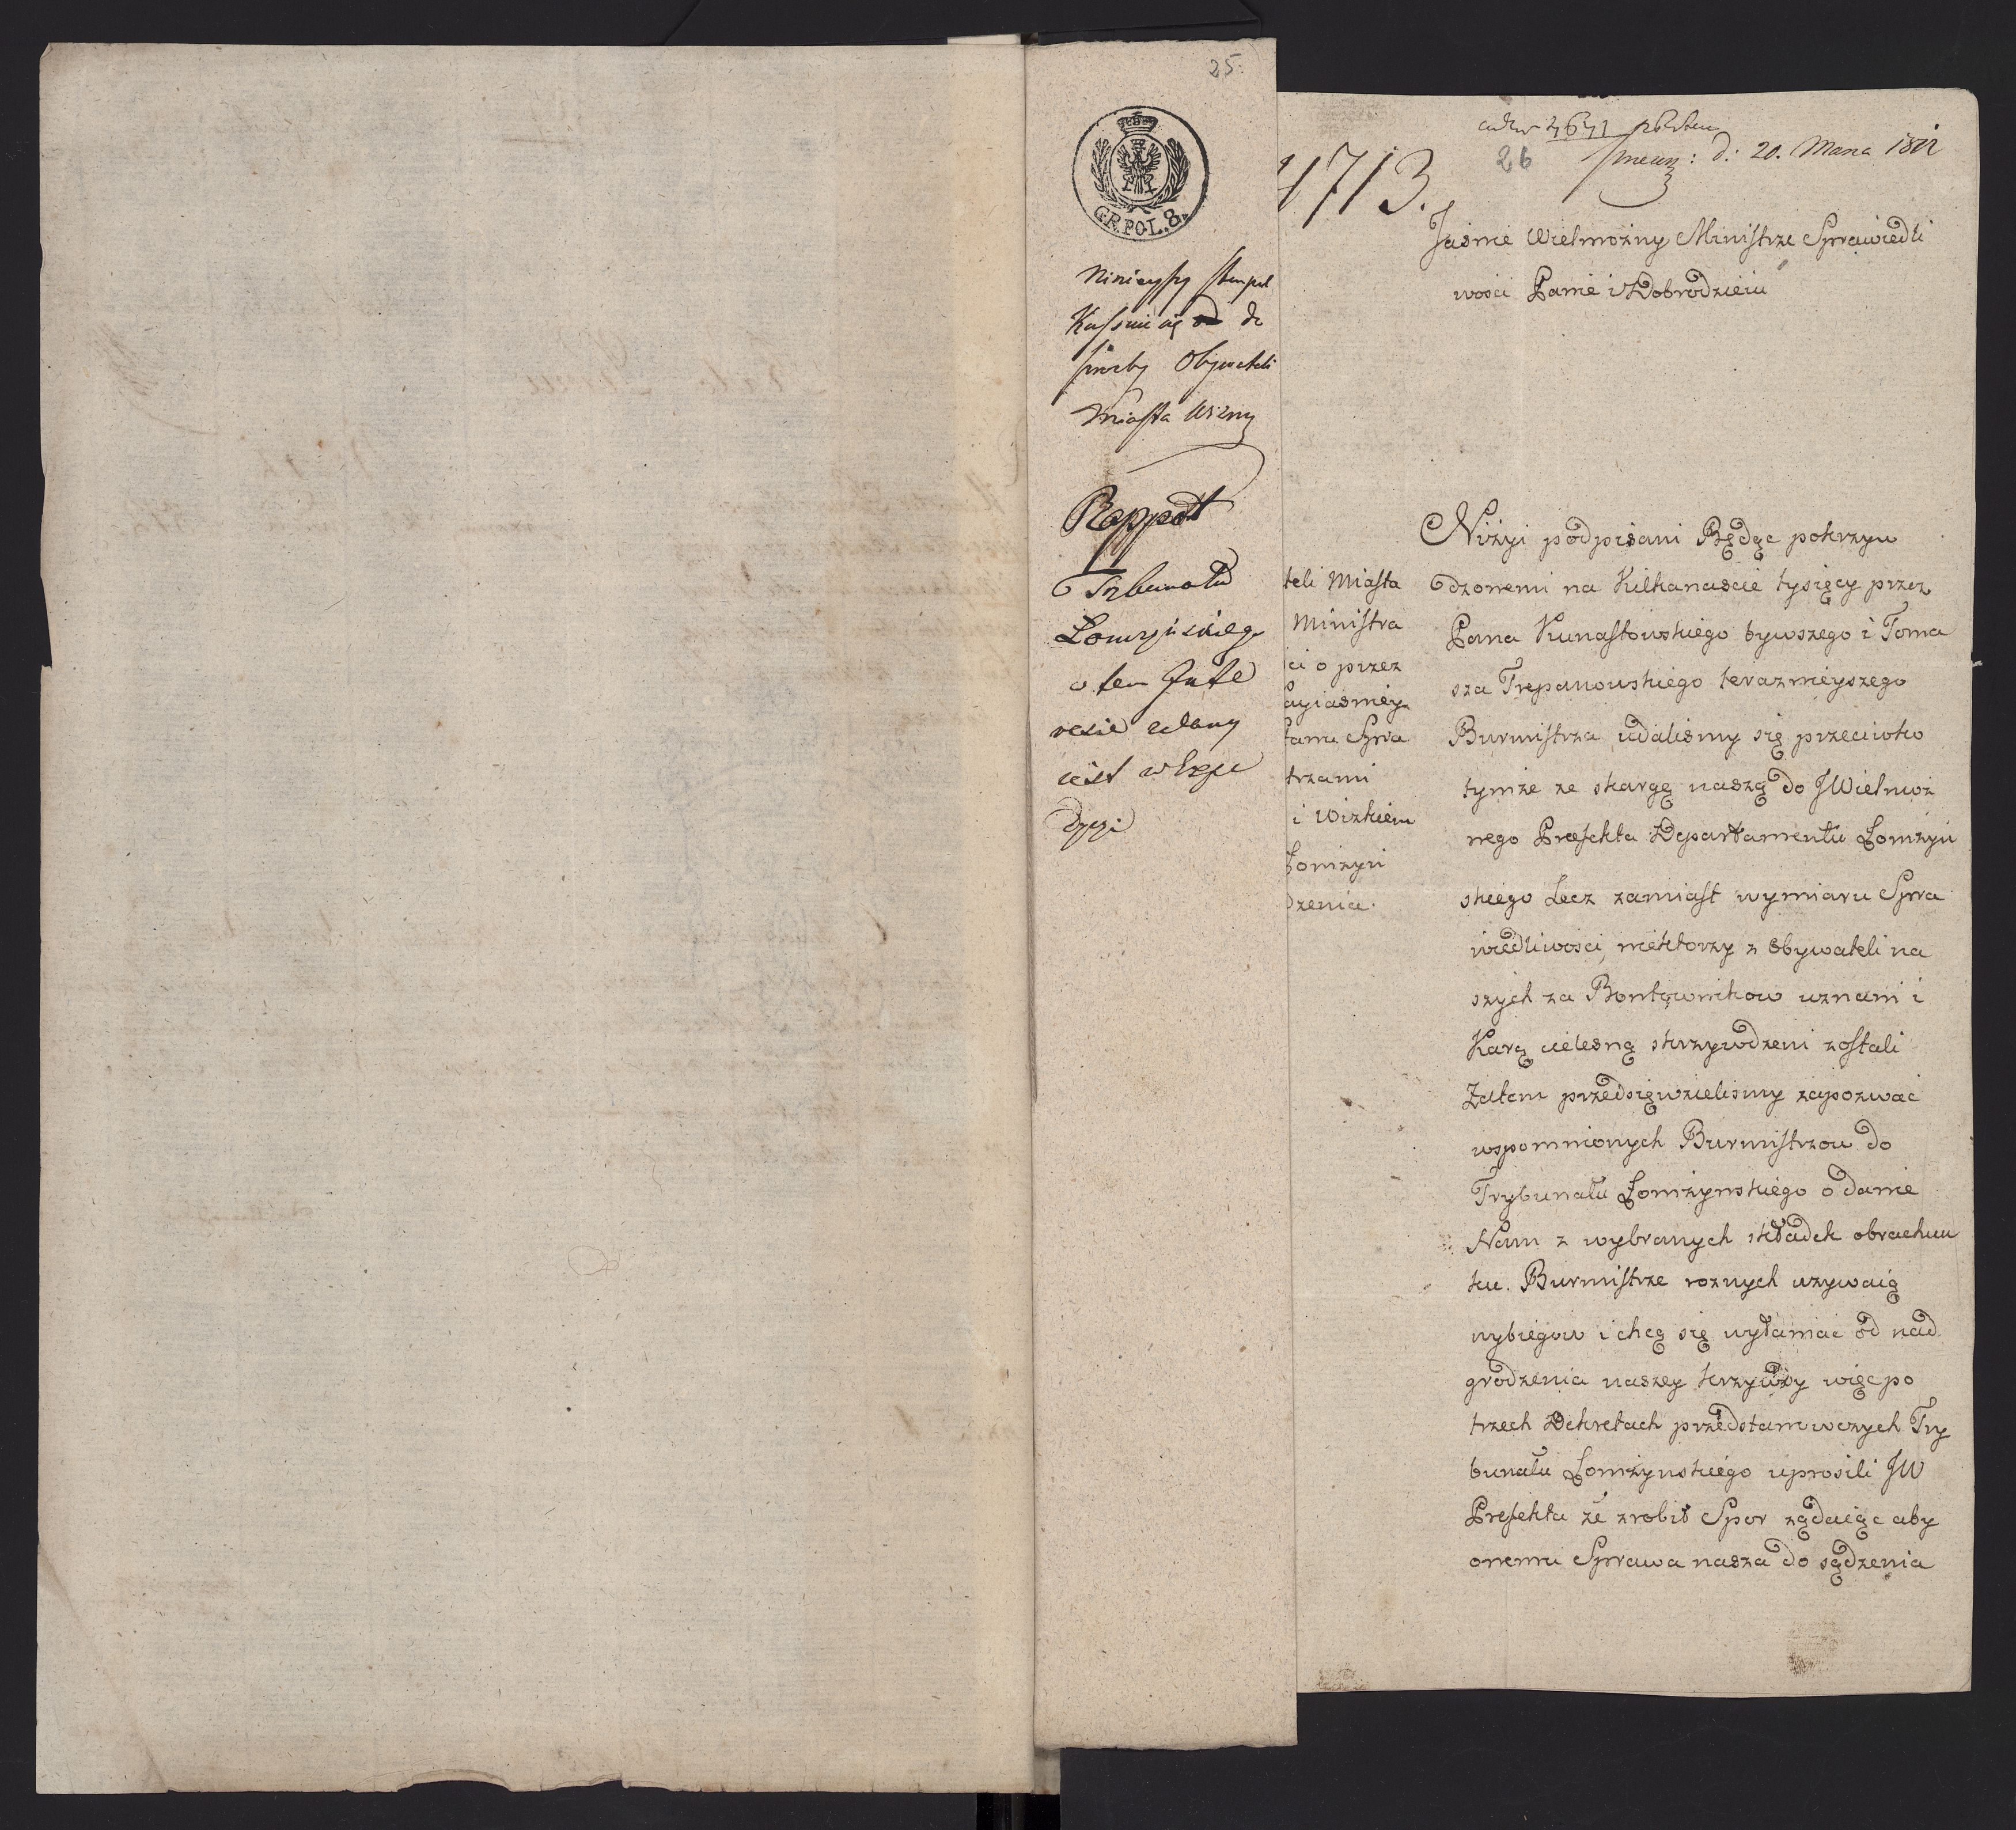 25.
GR.POL.8.
Ninieyszy stempel
Kassuie się od do
proźby Obywateli
Miasta Wizny
Rapport
Trybunału
Łomzyńskiego
w tem Inte
resie zdany
iest w Expe
dycyi
teli Miasta
Ministra
ci o przez
tamu Spra
trzami
i Wizkiem
Łomżyń
dzenia.
4713.
26
d: 20. Marca 1812
Jaśnie Wielmożny Ministrze Sprawiedli
wości Panie i Dobrodzieiu
Niżyi podpisani Będąc pokrzyw
dzonemi na Kilkanaście tysięcy przez
Pana Kunastowskiego bywszego i Toma
sza Trepanowskiego terazmieyszego
Burmistrza udaliśmy się przeciwko
tymże ze skargą naszą do JWielmoż
nego Prefekta Departamentu Łomżyń
skiego Lecz zamiast wymiaru Spra
wiedliwości, niektorzy z Obywateli na
szych za Bontowników uznani i
Karą cielesną skrzywdzeni zostali
Zatem przedsięwzieliśmy zapozwać
wspomnionych Burmistrzow do
Trybunału Łomżynskiego o danie
Nam z wybranych składek obrachun
ku. Burmistrze roznych uzywaią
wybiegow i chcą się wyłamać od nad
grodzenia naszey krzywdy więc po
trzech Dekretach przedstanowczych Try
bunału Łomżynskiego uprosili JW
Prefekta że zrobił Spor żądaiąc aby
onemu Sprawa nasza do sądzenia